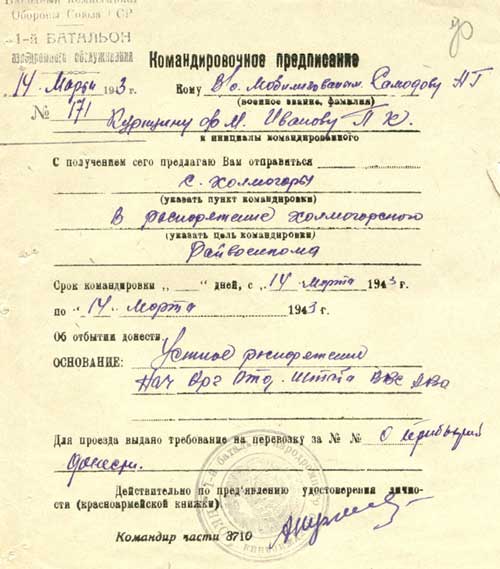 Народный Комиссариат
Обороны Союза ССР
1-й БАТАЛЬОН
аэродромного обслуживания
14 Марта 1943 г.
№ 171
Командировочное предписание
Кому В/о. Мобилизованым. Самодову А Г
(военное звание, фамилия)
М. Иванову П К.
и инициалы командированного
С получением сего предлагаю Вам отправиться
с. Холмогоры
(указать пункт командировки)
В распоряжение Холмогорского
(указать цель командировки)
Райвоенкома
Срок командировки „ “ дней, с „14 Марта 1943 г.
по „14. Марта 1943 г.
Об отбытии донести
ОСНОВАНИЕ: Устное распоряжение
Нач Орг Отд. Штаба ВВС
Для проезда выдано требование на перевозку за № № О прибытии
донести.
Действительно по пред'явлению удостоверения лично-
сти (красноармейской книжки)
Командир части 3710